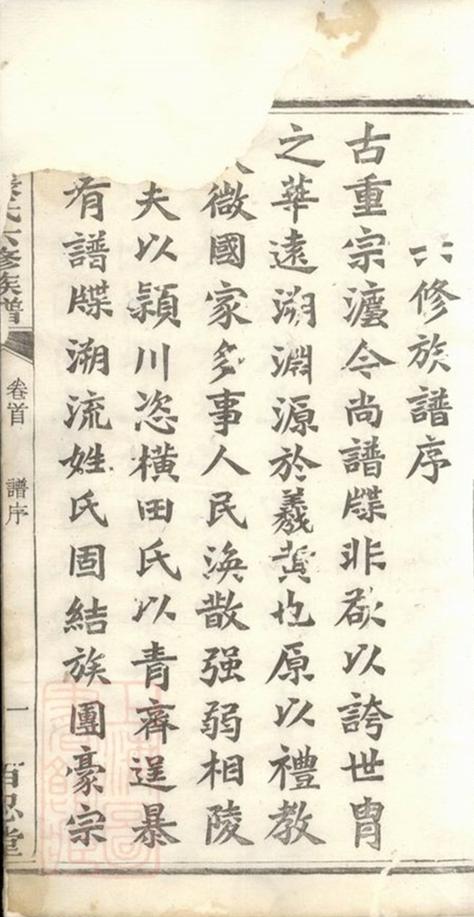 六修族譜序
古重宗灋今尚譜牒非欲以誇世胄
之華遠溯淵源於羲黃也原以禮教
微國家多事人民渙散强弱相陵
夫以潁川恣橫田氏以青齊逞暴
有譜牒溯流姓氏固結族團豪宗
氏六修族譜
卷首
譜序
一
百忍堂